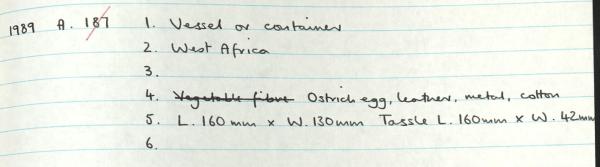 1989 A. 187 1. Vessel or container
2. West Africa
3.
4. Vegetable fibre Ostrich egg, leather, metal, cotton
5. L. 160mm x W. 130mm Tassle L. 160mm x W. 42mm
6.